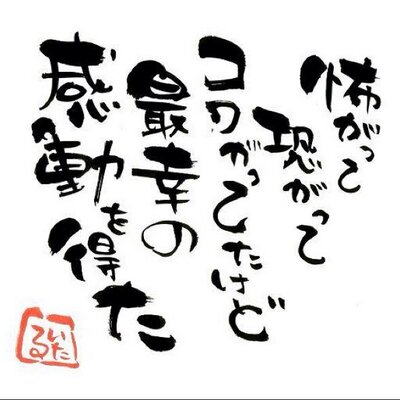 怖がって
恐がって
コワがってたけど
最幸の
感動を得た
いた
るい